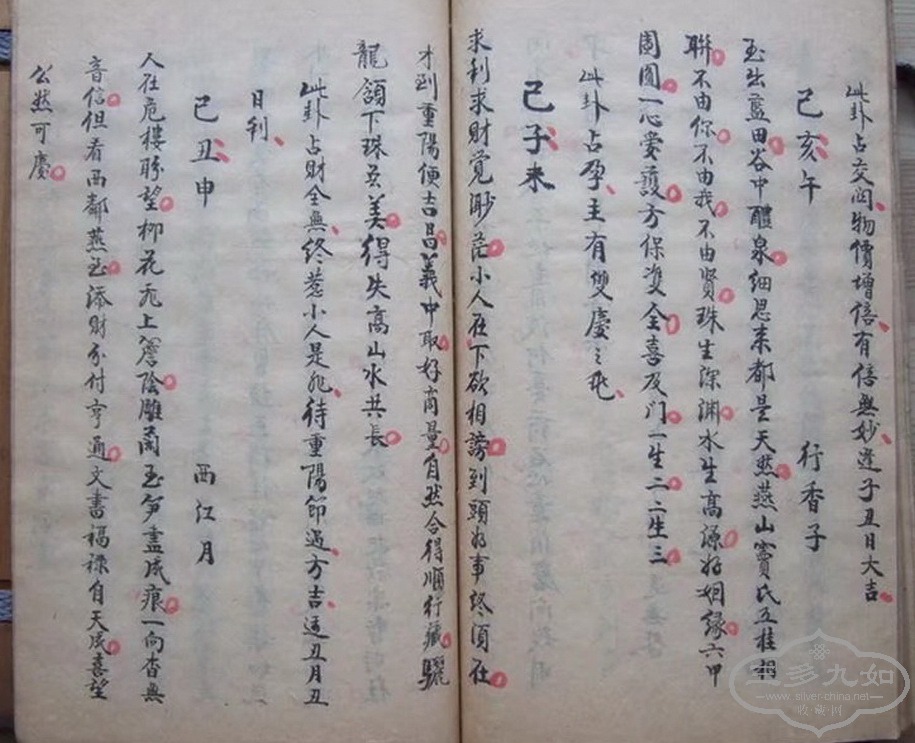 此卦占交關物價增倍有信無妙逢子丑日大吉
己亥午 行香子
玉出藍田谷中醴泉細思来都是天然燕山竇氏五桂相
聯不由你不由我不由賢珠生深渊水生高源好姻緣六甲
團圓一心爱護方保双全喜及门一生二二生三
此卦占孕主有雙慶之兆
己子未
求利求财覓渺茫小人在下欲相謗到頭好事终須在
才到重陽便吉昌義中取好商量自然合得順行藏驪
龍頷下珠光美得失高山水共長
此卦占财全無终惹小人是非待重陽節过方吉运丑月丑
日利
己丑申 西江月
人在危樓盼望柳花飛上簷陰雕蘭玉笋盡成痕一向杳無
音信但看西鄰燕玉添财分付亨通文書福禄自天成喜望
公然可慶
至多九如
www.silver-china.net
收藏网